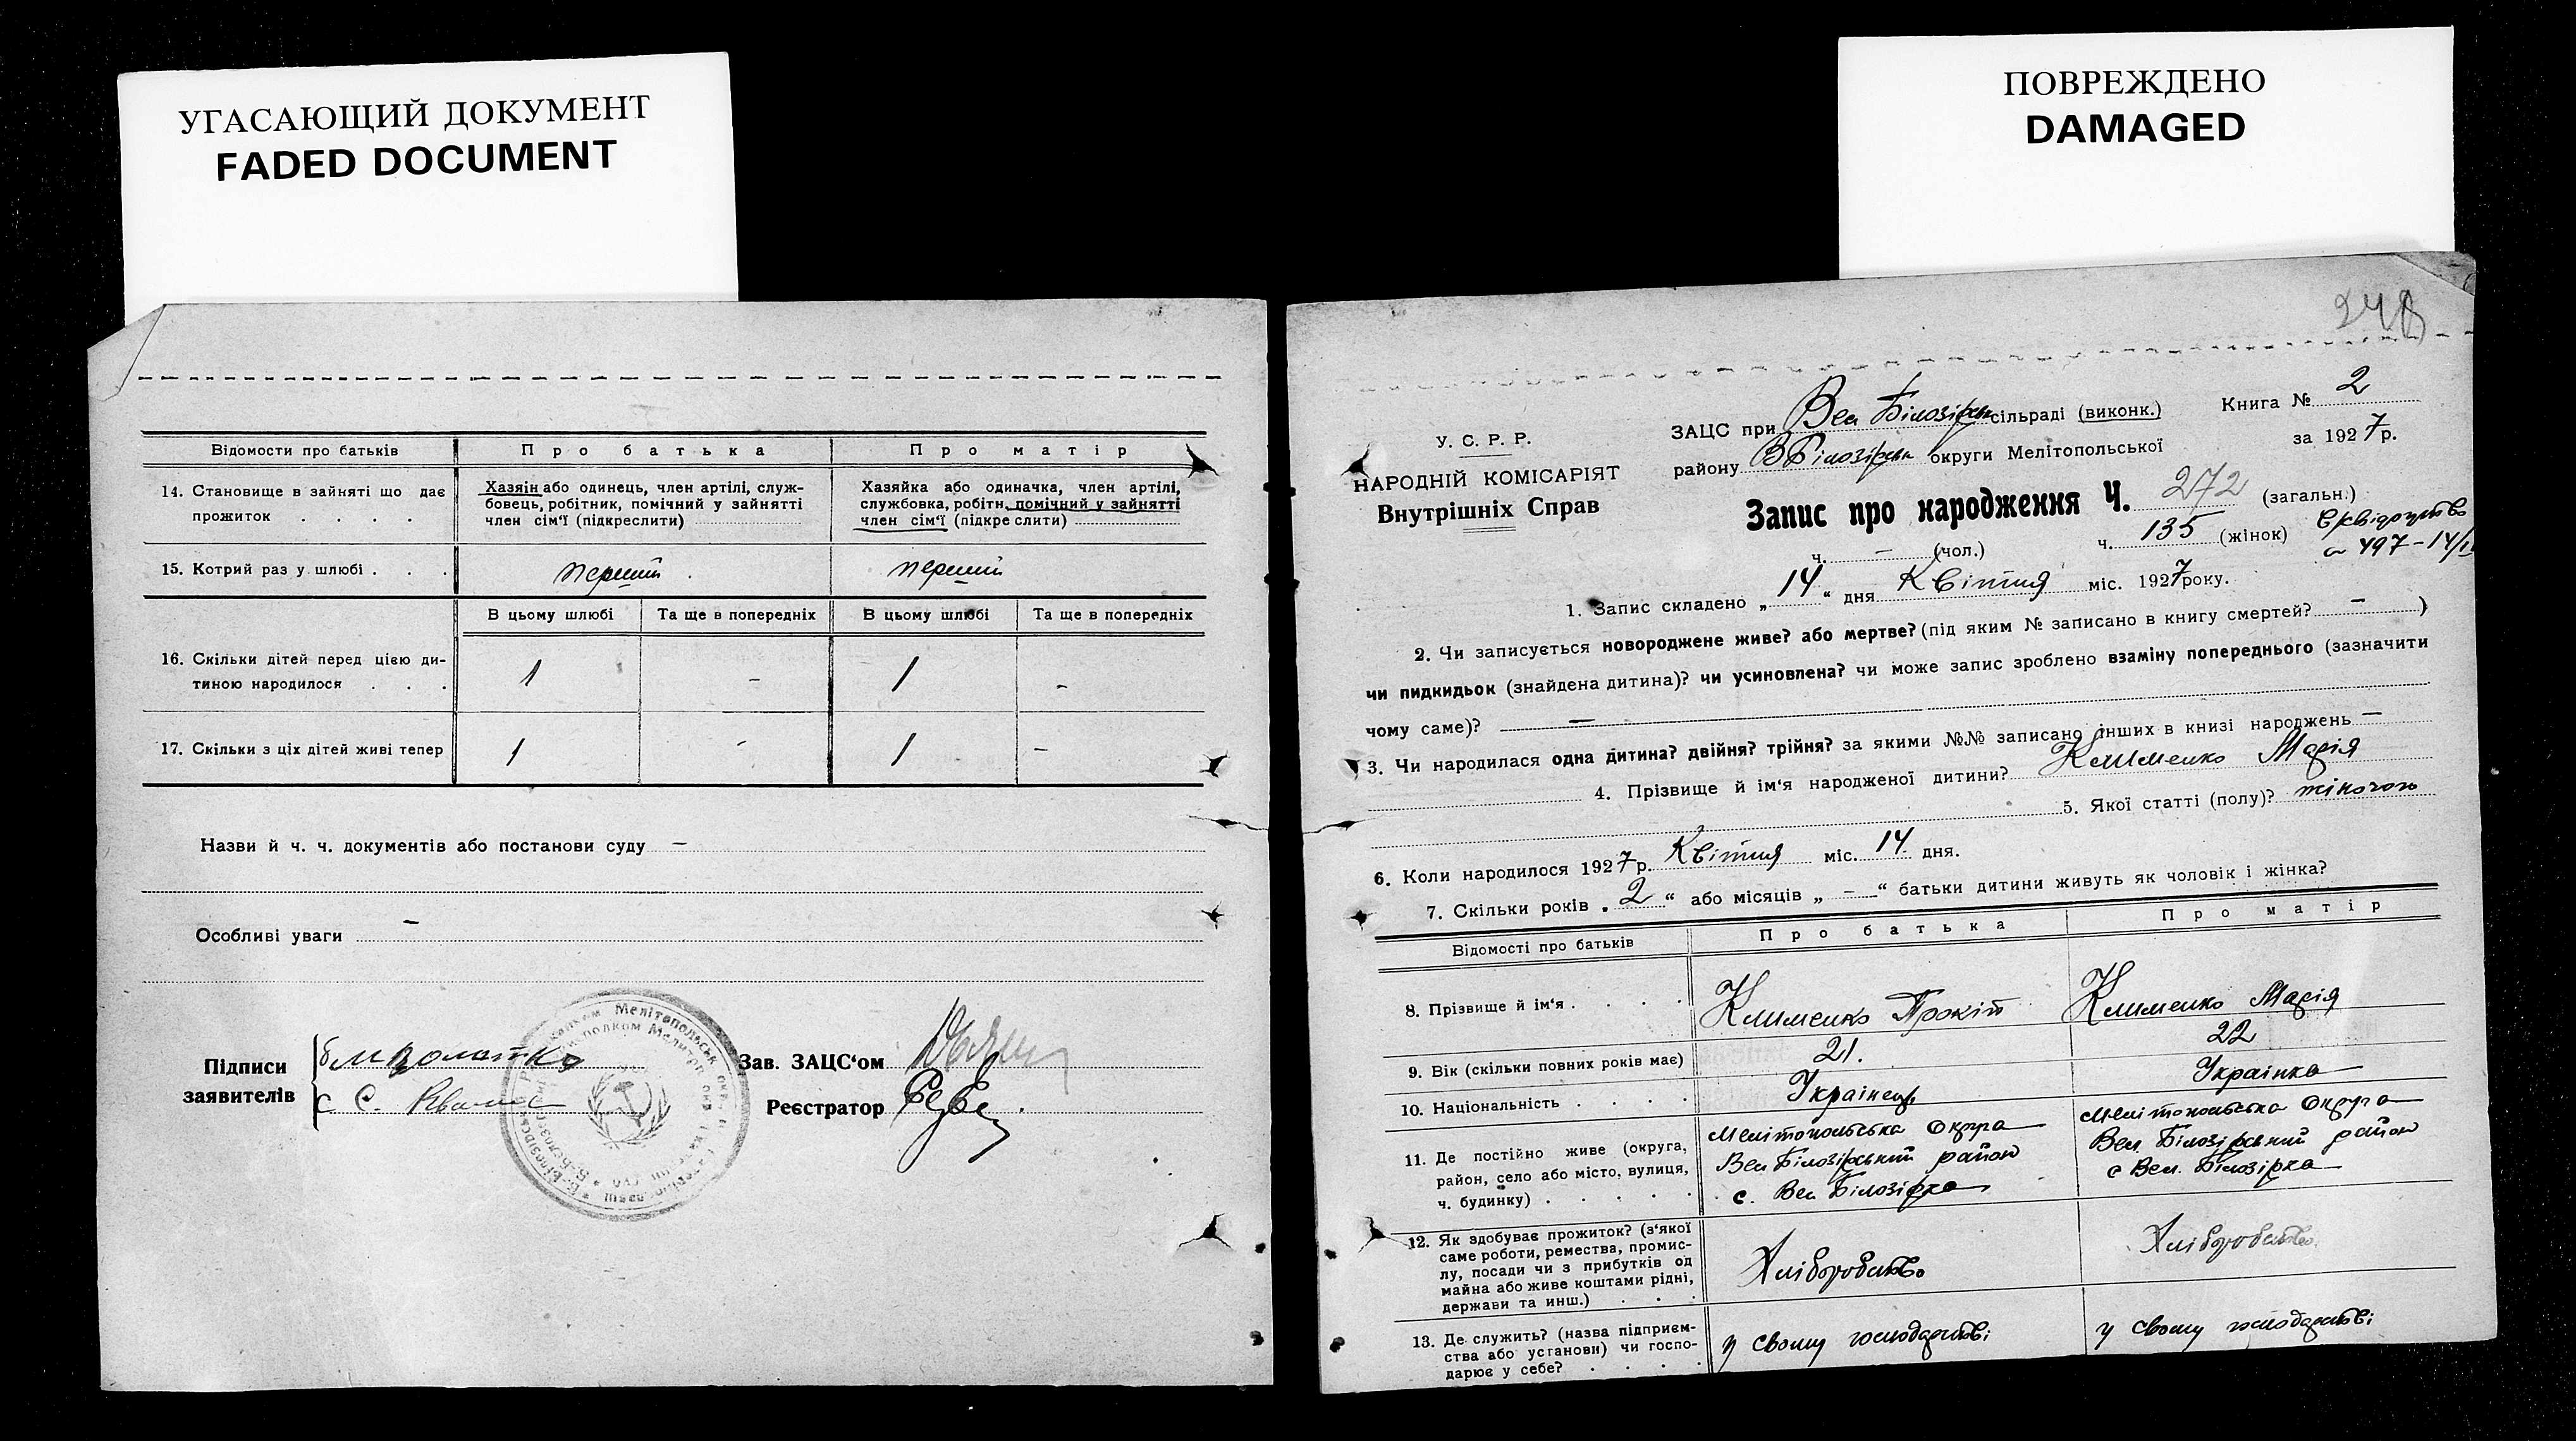 УГАСАЮЩИЙ ДОКУМЕНТ
FADED DOCUMENT
Відомости про батьків
Про батька
Про матір
14. Становище в зайняті що дає
прожиток . . . .
Хазяін або одинець, член артілі, служ-
бовець, робітник, помічний у зайнятті
член сім'ї (підкреслити)
Хазяйка або одиначка, член артілі,
службовка, робітн. помічний у зайнятті
член сім'ї (підкре слити)
15. Котрий раз у шлюбі . . .
перший
перший
В цьому шлюбі
Та ще в попередніх
В цьому шлюбі
Та ще в попередніх
16. Скільки дітей перед цією ди-
тиною народилося . . .
1
-
1
-
17. Скільки з ціх дітей живі тепер
1
-
1
-
Назви й ч. ч. документів або постанови суду —
Особливі уваги —
Підписи
заявителів
Зав. ЗАЦС'ом
Реєстратор
ПОВРЕЖДЕНО
DAMAGED
248
У. С. Р. Р.
НАРОДНІЙ КОМІСАРІЯТ
Внутрішніх Справ
ЗАЦС при Вел Білозірськ сільраді (виконк.)
Книга № 2
району ВБілозірськ округи Мелітопольської
за 1927р.
Запис про народження Ч. 272 (загальн.)
ч. — (чол.)
ч. 135 (жінок)
497-14/
1. Запис складено „14“ дня Квітня міс. 1927року.
2. Чи записується новороджене живе? або мертве? (під яким № записано в книгу смертей? — )
чи пидкидьок (знайдена дитина)? чи усиновлена? чи може запис зроблено взаміну попереднього (зазначити
чому саме)? —
3. Чи народилася одна дитина? двійня? трійня? за якими №№ записано інших в книзі народжень —
4. Прізвище й ім'я народженої дитини? Клименко Марія
5. Якої статті (полу)? жіночої
6. Коли народилося 1927р. Квітня міс. 14 дня.
7. Скільки років „2“ або місяців „—“ батьки дитини живуть як чоловік і жінка?
Відомості про батьків
Про батька
Про матір
8. Прізвище й ім'я . . . .
Клименко Прокіп
Клименко Марія
9. Вік (скільки повних років має)
21.
22
10. Національність . . . .
Українець
Українка
11. Де постійно живе (округа,
район, село або місто, вулиця,
ч. будинку) . . . . .
Мелітопольська Округа
Вел Білозірський район
с. Вел Білозірка
Мелітопольська Округа
Вел. Білозірський район
с Вел. Білозірка
12. Як здобуває прожиток? (з'якої
саме роботи, ремества, промис-
лу, посади чи з прибутків од
майна або живе коштами рідні,
держави та инш.) . . .
Хліборобство
Хліборобство
13. Де служить? (назва підприєм-
ства або установи) чи госпо-
дарює у себе? . . . .
у свому господарстві
у свому господарстві